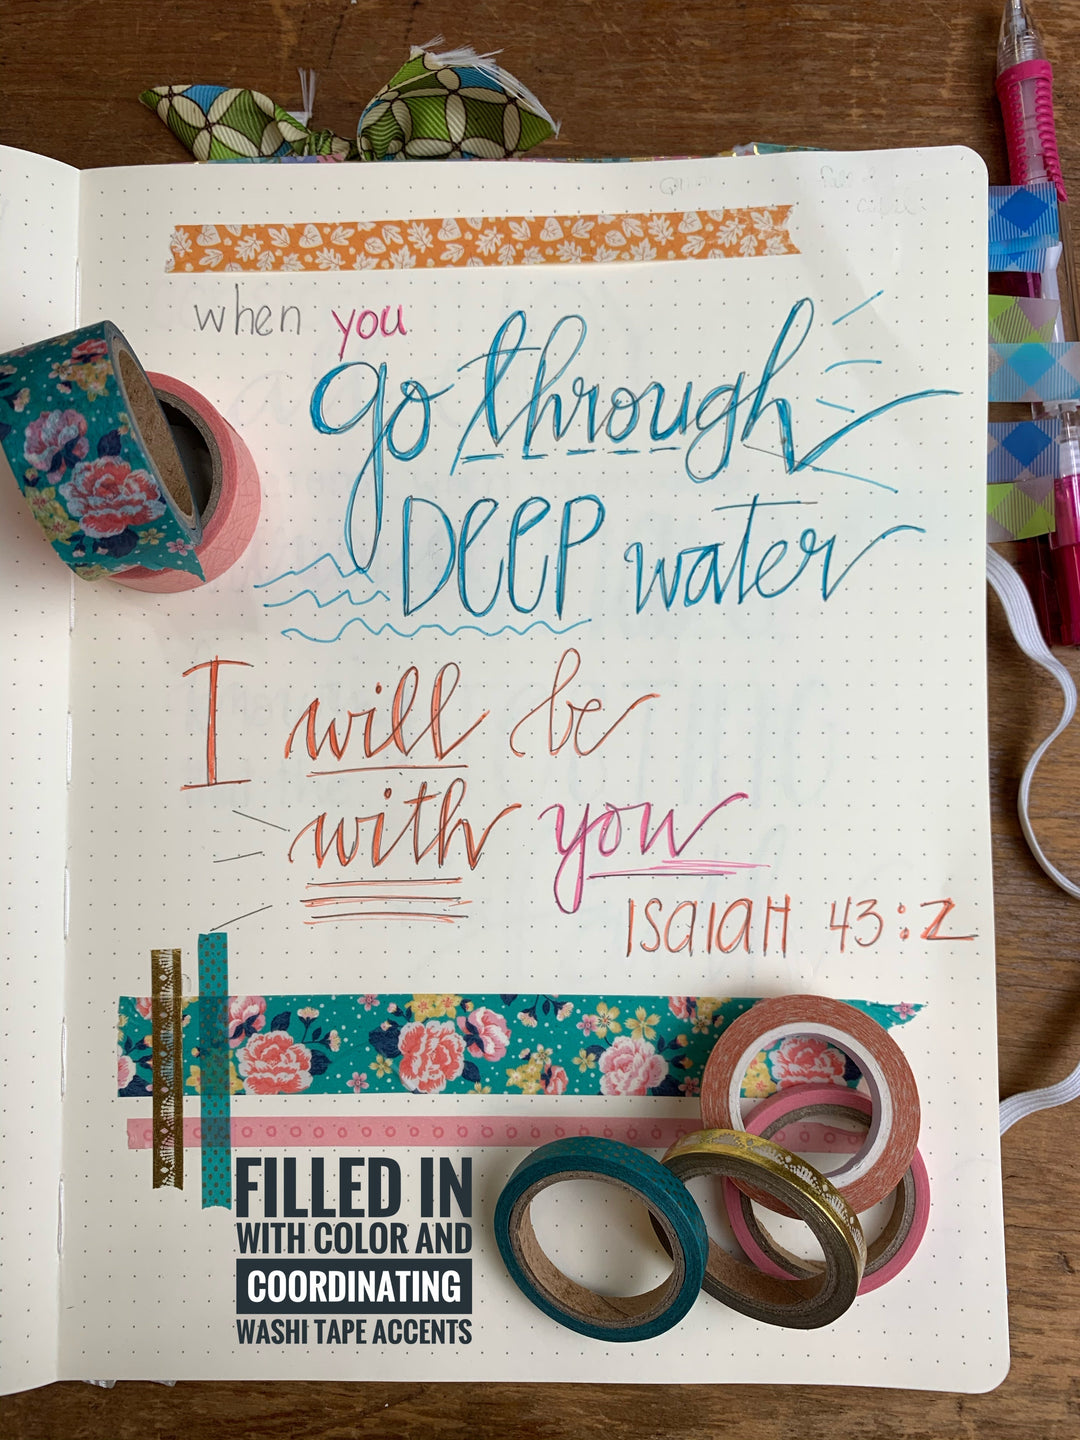 when you
go through
DEEP water
I will be
with you
ISAIAH 43:2
FILLED IN
WITH COLOR AND
COORDINATING
WASHI TAPE ACCENTS